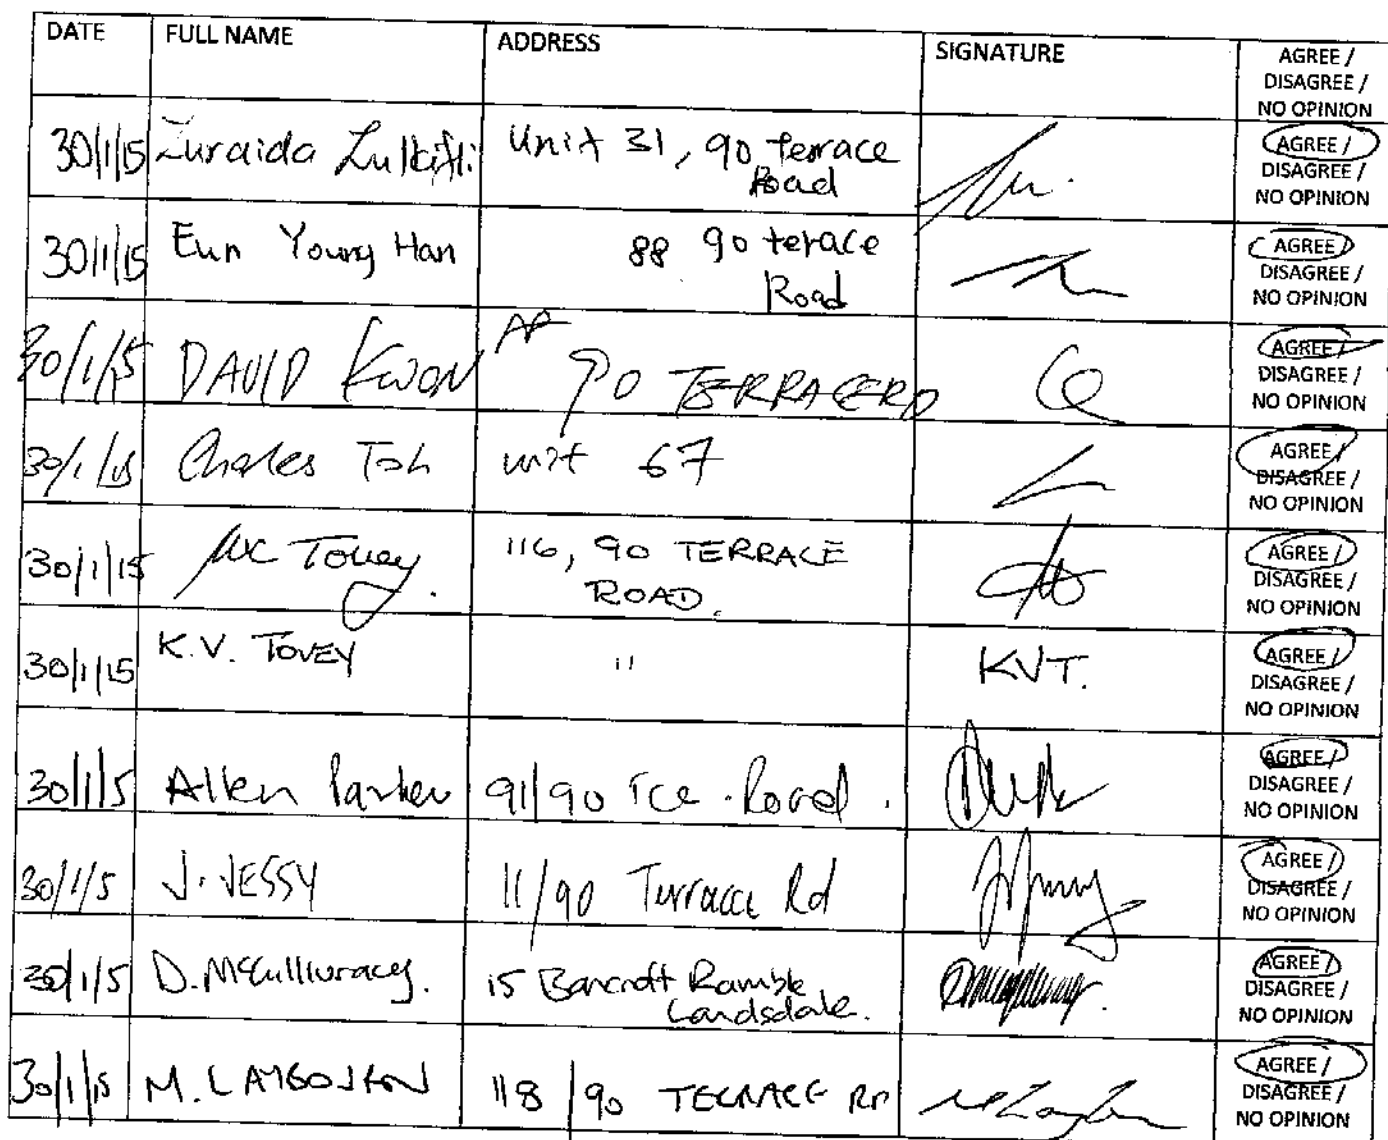 DATE FULL NAME ADDRESS SIGNATURE AGREE /
DISAGREE /
NO OPINION
30/1/15 Zuraida Zulkifli Unit 31, 90 terrace AGREE /
Road DISAGREE /
NO OPINION
30/1/15 Eun Young Han 88 90 terace AGREE /
Road DISAGREE /
NO OPINION
30/1/15 DAVID KWON AP 90 TERRACE RD AGREE /
DISAGREE /
NO OPINION
30/1/15 Charles Toh unit 67 AGREE /
DISAGREE /
NO OPINION
30/1/15 Tovey. 116, 90 TERRACE AGREE /
ROAD. DISAGREE /
NO OPINION
30/1/15 K.V. TOVEY 11 KVT. AGREE /
DISAGREE /
NO OPINION
30/1/15 Allen Parker 91/90 Tce. Road. AGREE /
DISAGREE /
NO OPINION
30/1/15 J. JESSY 11/90 Terrace Rd AGREE /
DISAGREE /
NO OPINION
30/1/15 D. 15 Bancroft Ramble AGREE /
Landsdale. DISAGREE /
NO OPINION
30/1/15 M. 118/90 TERRACE RD AGREE /
DISAGREE /
NO OPINION